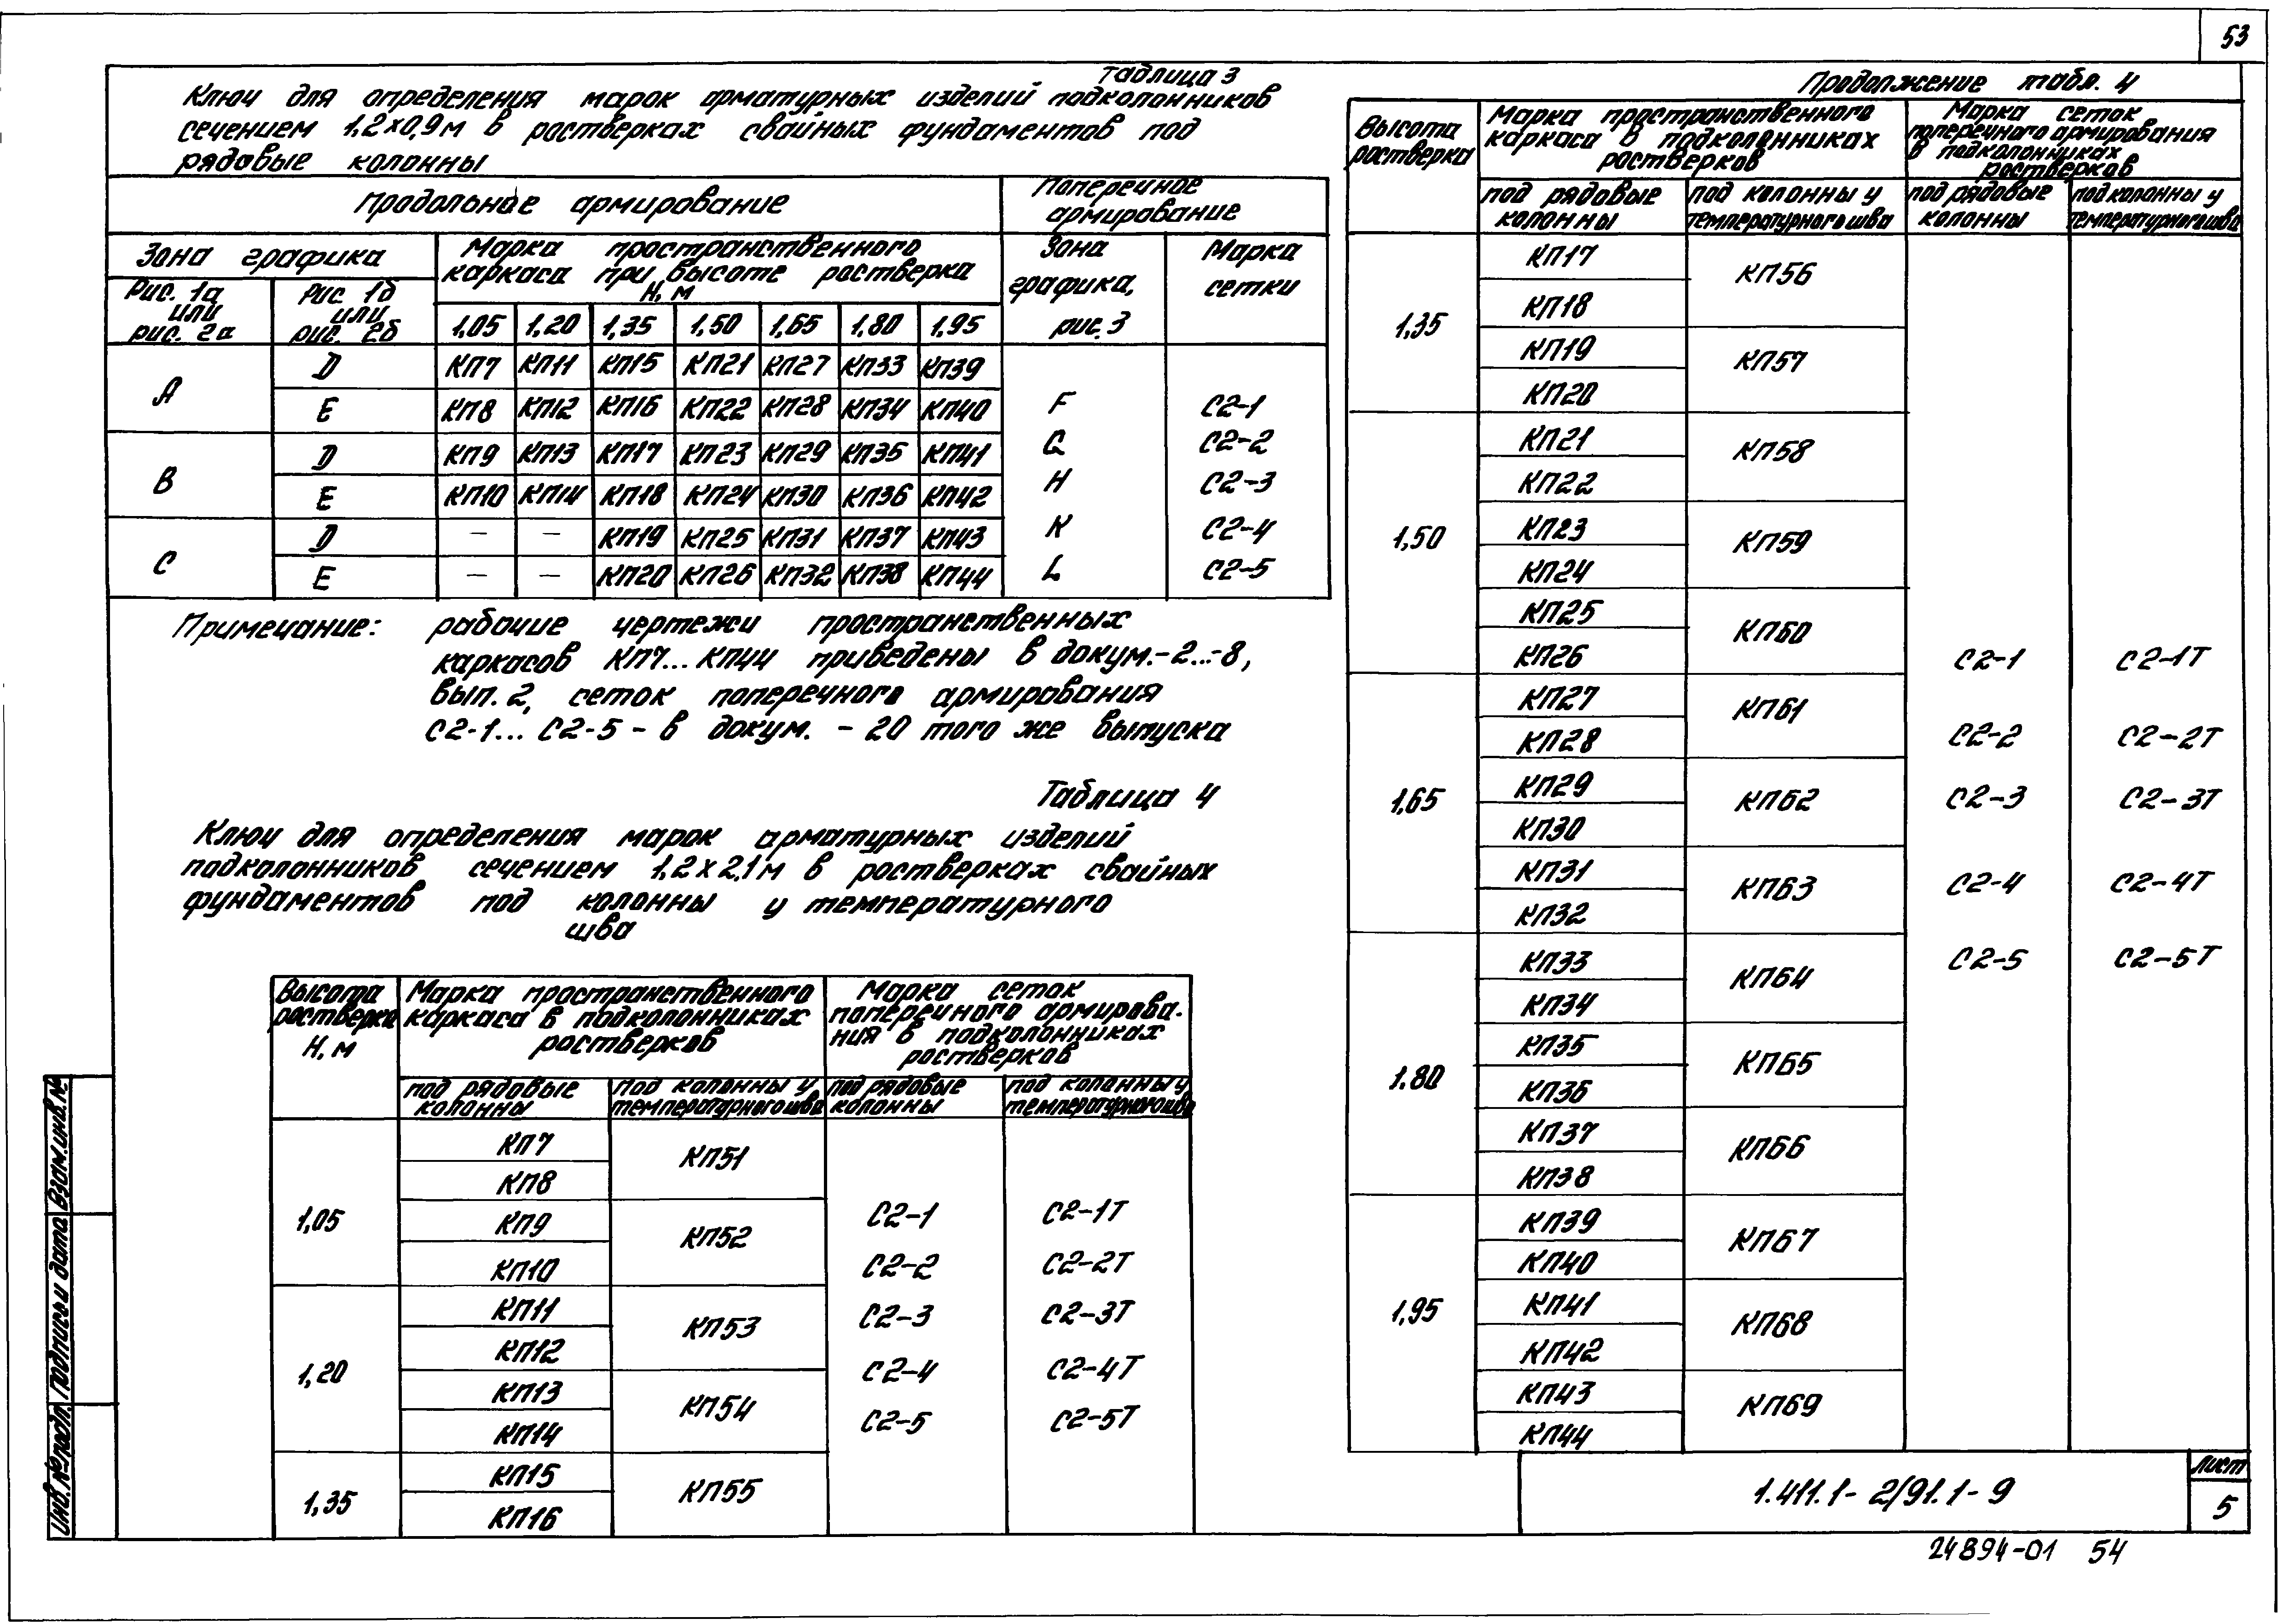 53
Таблица 3
Ключ для определения марок арматурных изделий подколонников
сечением 1,2×0,9м в ростверках свайных фундаментов под
рядовые колонны
Продольное армирование
Поперечное
армирование
Зона графика
Марка пространственного
каркаса при высоте ростверка
Н, м
Зона
графика,
рис. 3
Марка
сетки
Рис. 1а
или
рис. 2а
Рис 1б
или
рис. 2б
1,05 1,20 1,35 1,50 1,65 1,80 1,95
А
D КП7 КП11 КП15 КП21 КП27 КП33 КП39
E КП8 КП12 КП16 КП22 КП28 КП34 КП40
В
D КП9 КП13 КП17 КП23 КП29 КП35 КП41
E КП10 КП14 КП18 КП24 КП30 КП36 КП42
С
D — — КП19 КП25 КП31 КП37 КП43
E — — КП20 КП26 КП32 КП38 КП44
F С2-1
G С2-2
H С2-3
K С2-4
L С2-5
Примечание: рабочие чертежи пространственных
каркасов КП7...КП44 приведены в докум.-2...-8,
вып. 2, сеток поперечного армирования
С2-1... С2-5 - в докум. - 20 того же выпуска
Таблица 4
Ключ для определения марок арматурных изделий
подколонников сечением 1,2×2,1м в ростверках свайных
фундаментов под колонны у температурного
шва
Высота
ростверка
Н, м
Марка пространственного
каркаса в подколонниках
ростверков
Марка сеток
поперечного армирова-
ния в подколонниках
ростверков
под рядовые
колонны
под колонны у
температурного шва
под рядовые
колонны
под колонны у
температурного шва
1,05
КП7
КП8
КП51
КП9
КП10
КП52
1,20
КП11
КП12
КП53
КП13
КП14
КП54
1,35
КП15
КП16
КП55
С2-1 С2-1Т
С2-2 С2-2Т
С2-3 С2-3Т
С2-4 С2-4Т
С2-5 С2-5Т
Продолжение табл. 4
Высота
ростверка
Марка пространственного
каркаса в подколонниках
ростверков
Марка сеток
поперечного армирования
в подколонниках
ростверков
под рядовые
колонны
под колонны у
температурного шва
под рядовые
колонны
под колонны у
температурного шва
1,35
КП17
КП18
КП56
КП19
КП20
КП57
1,50
КП21
КП22
КП58
КП23
КП24
КП59
КП25
КП26
КП60
1,65
КП27
КП28
КП61
КП29
КП30
КП62
КП31
КП32
КП63
1.80
КП33
КП34
КП64
КП35
КП36
КП65
КП37
КП38
КП66
1,95
КП39
КП40
КП67
КП41
КП42
КП68
КП43
КП44
КП69
С2-1 С2-1Т
С2-2 С2-2Т
С2-3 С2-3Т
С2-4 С2-4Т
С2-5 С2-5Т
Инв. № подл. Подпись и дата Взам. инв. №
1.411.1-2/91.1-9
Лист
5
24894-01 54